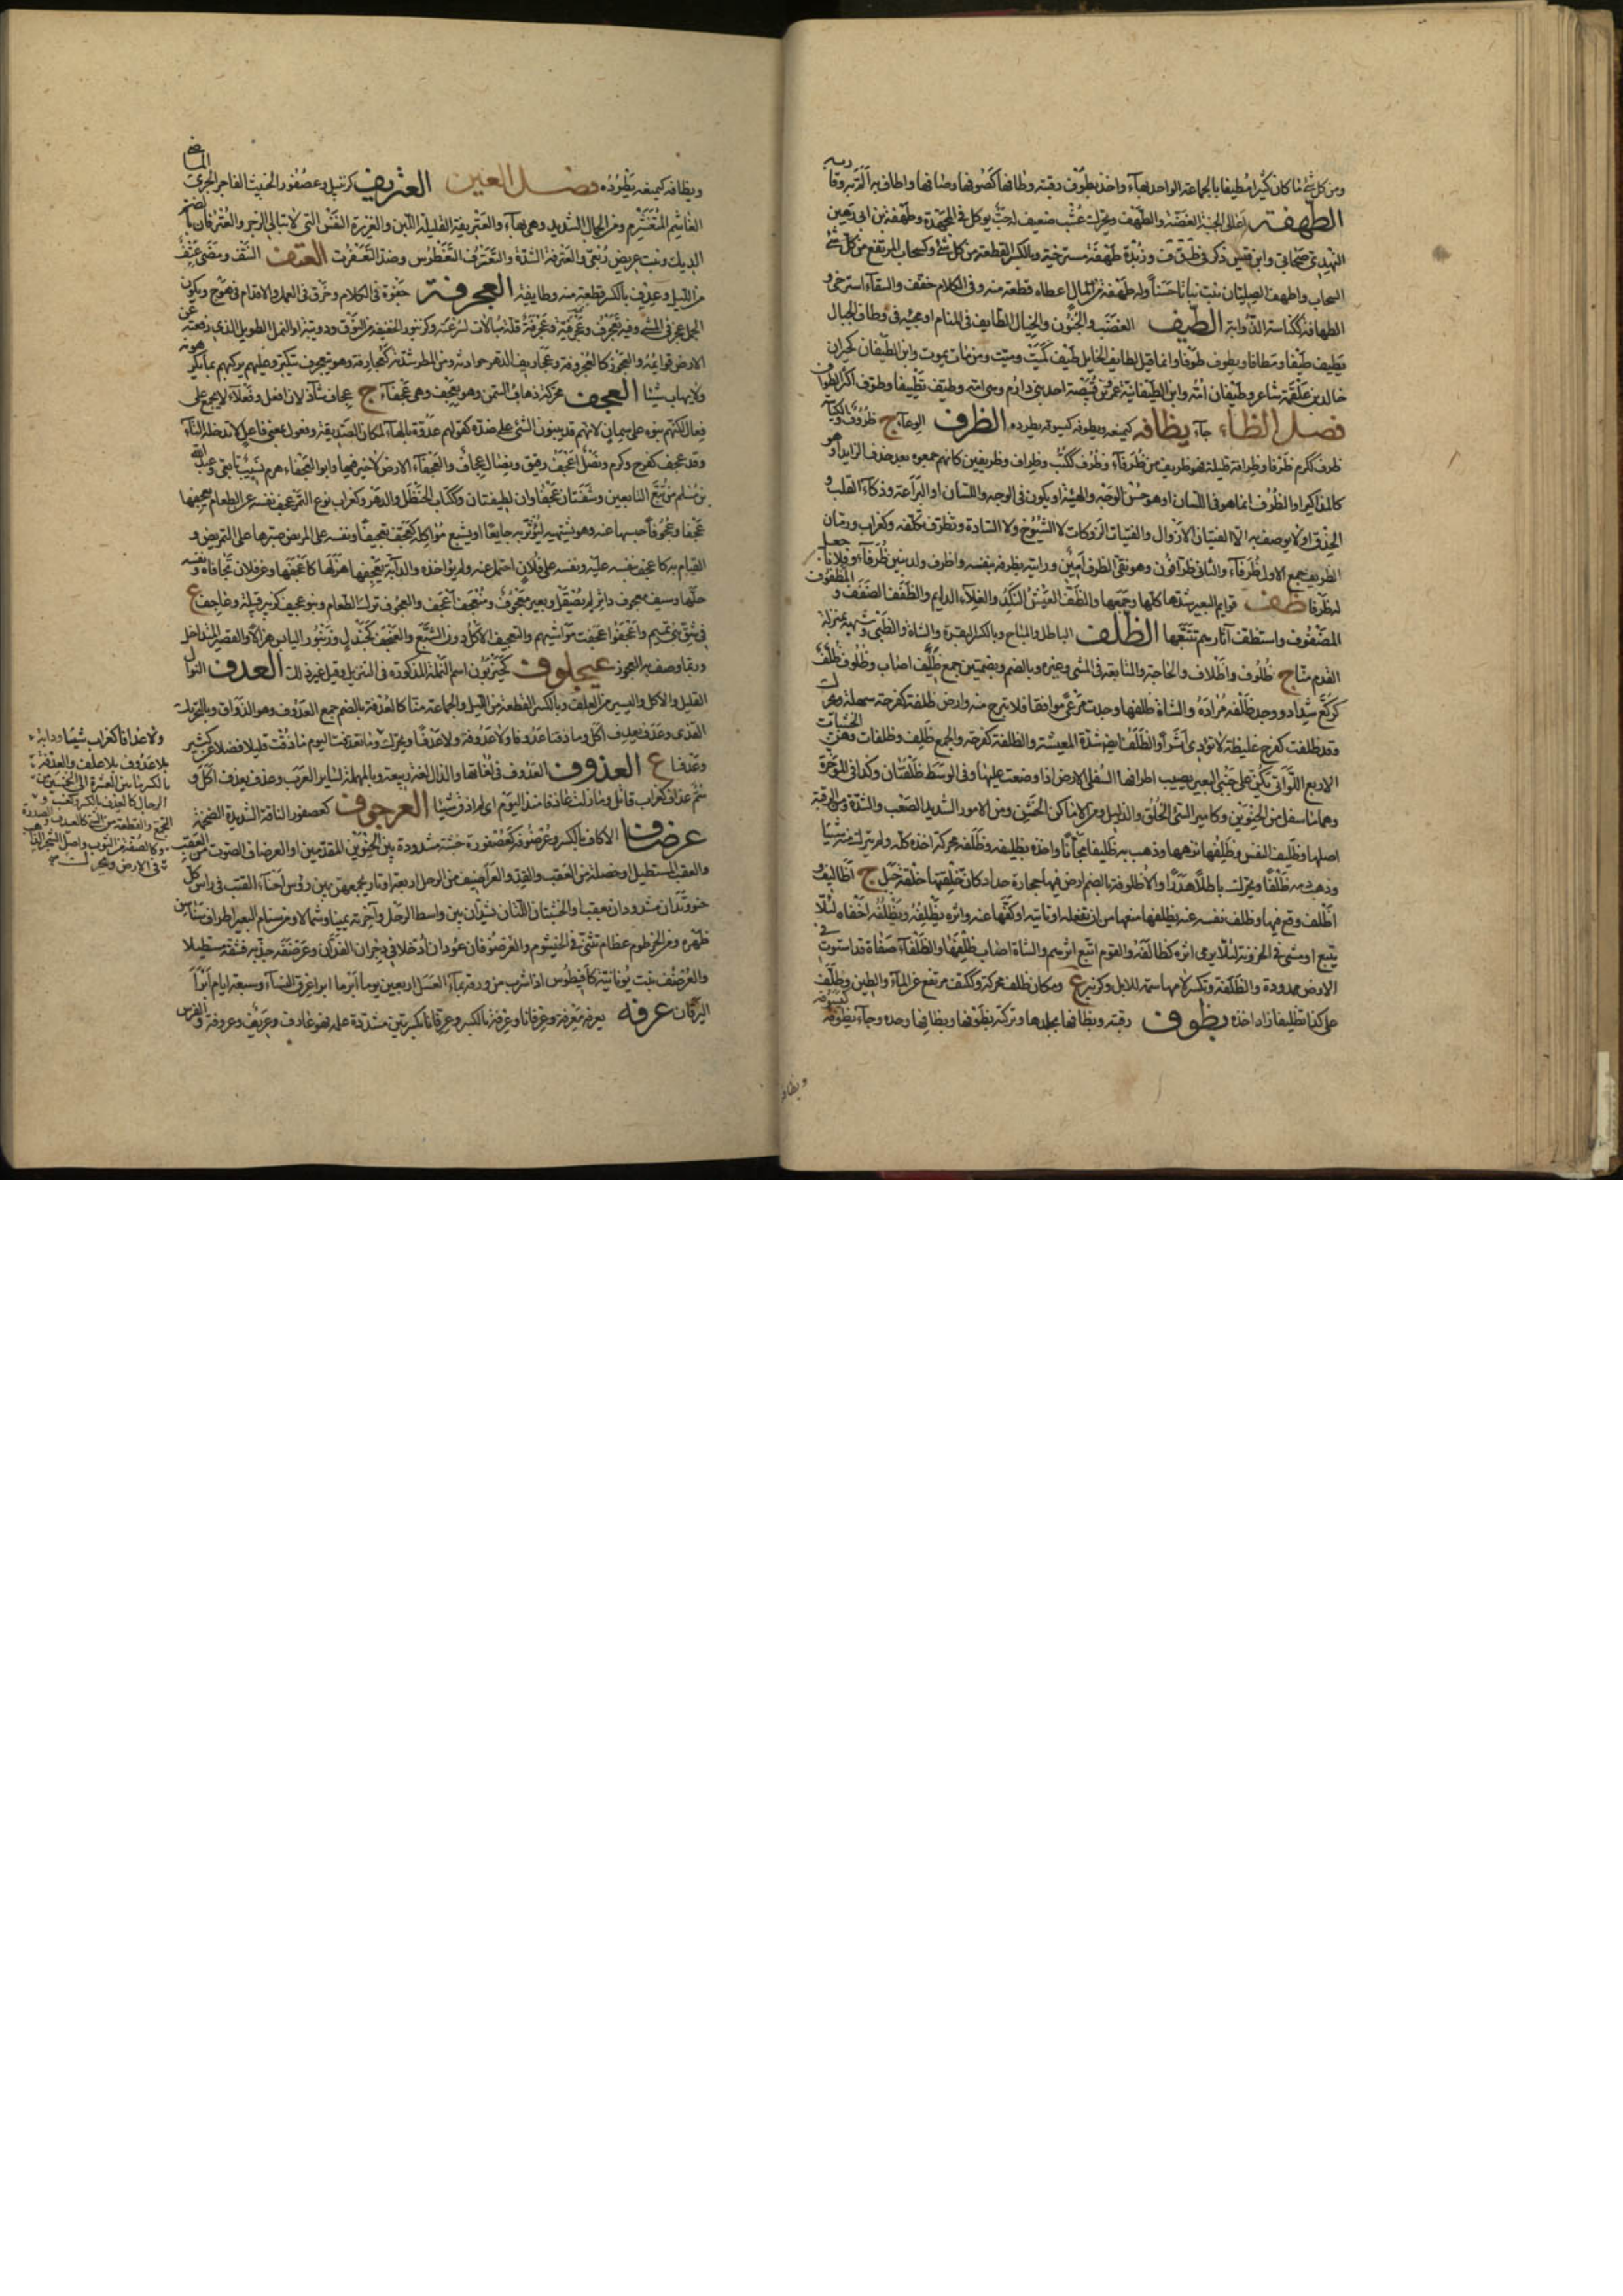 ومن كل شئ ما كان كثيرا مطيفا بالجماعة الواحد بهاء واخذ بطوف رقبته وطافها كصوفها وصافها واطاف به الم به وقاربه
الطهفة اعالى الجنبة الغضة والطهف ويحرك عشب ضعيف له حب يوكل فى المجهدة وطهفة بن ابى زهير
النهدى صحابى وابن قيس ذكر فى ط ق ف وزبدة طهفة مسترخية وبالكسر القطعة من كل شئ وكسحاب المرتفع من كل شئ
السحاب واطهف الصليان نبت نباتا حسنا وله طهفة من المال اعطاه قطعة منه وفى الكلام خفف والسقاء استرخى و
الطهافة ككناسة الذوابة الطيف الغضب والجنون والخيال الطايف فى المنام او مجيئه فى وطاف الخيال
يطيف طيفا ومطافا ويطوف طوفا وانما قيل لطايف الخايل طيف كميت وميت ومن مات يموت وابن الطيفان كحيران
خالد بن علقمة شاعر وطيفان امه وابن الطيفانية عمرو بن قبيصة احد بنى دارم وهى امه وطيف تطييفا وطوف اكثر الطواف
فصل الظاء جاء يظافه كيمنعه ويظوفه كيسوقه يطرده الظرف الوعاء ج ظروف والكياسة
ظرف ككرم ظرفا وظرافة قليلة فهو ظريف من ظرفاء وظرف ككتب وظراف وظريفين كانهم جمعوه بعد حذف الزايد او هو
كالمذاكير او الظرف انما هو فى اللسان او هو حسن الوجه والهيئة او يكون فى الوجه واللسان او البراعة وذكاء القلب و
الحذق او لا يوصف به الا الفتيان الازوال والفتيات الزولات لا الشيوخ ولا السادة وتظرف تكلفه وكغراب ورمان
الظريف جمع الاول ظرفاء والثانى ظرافون وهو نقى الظرف امين ورايته بظرفه بنفسه واظرف ولد بنين ظرفاء وفلانا جعل
له ظرفا ظف قوايم البعير شدها كلها وجمعها والظف العيش النكد والغلاء الدايم والظفف الضفف و المظفوف
المضفوف واستظف آثارهم تتبعها الظلف الباطل والمباح وبالكسر للبقرة والشاة والظبى وشبهها بمنزلة
القدم منا ج ظلوف واظلاف والحاجة والمتابعة فى المشى وغيره وبالضم وبضمتين جمع ظليف اصاب وظلوف ظلف
كركع شداد ووجد ظلفه مراده والشاة ظلفها وجدت مرعى موافقا فلا تبرح منه وارض ظلفة كفرحة سهلة وعرت
وقد ظلفت كفرح غليظة لا تودى اثرا والظلف ايضا شدة المعيشة والظلفة كفرحة والجمع ظليف وظلفات وهن الخشبات
الاربع اللواتى تكن على جنبى البعير يصيب اطرافها السفلى الارض اذا وضعت عليها وفى الوسط ظلفتان وكذا فى المؤخرة
وهما ما سفل من الحنوين وكامير السئ الخلق والذليل ومن الاماكن الخشن ومن الامور الشديد الصعب والشدة ومن الرقبة
اصلها وظليف النفس وظلفها نزهها وذهب به ظليفا مجانا واخذه بظليفه وظلفه محركة اخذه كله ولم يترك منه شيا
وذهب دمه ظلفا ويحرك باطلا هدرا والاظلوفة بالضم ارض فيها حجارة حداد كان خلقتها خلقة جبل ج اظاليف و
اظلف وقع فيها وظلف نفسه عنه يظلفها منعها من ان تفعله او تاتيه او كفها عنه واثره يظلفه ويظلفه اخفاه لئلا
يتبع او مشى فى الحزونة لئلا يرى اثره كظالفه والقوم اتبع اثرهم والشاة اصاب ظلفها والظلفاء صفاة قد استوت فى
الارض ممدودة والظلفة وتكسر لامها سمة للابل وكزبير ع ومكان ظلف محركة وككتف مرتفع عن الماء والطين وظلف
على كذا تظليفا زاد اخذه بظوف رقبته وبظافها بجلدها وتركته بظوفها وبظافها وحده وجاء يظوفه كيسوقه
ويظافه
ويظافه كيمنعه يطرده فصل العين العتريف كزنبيل وعصفور الخبيث الفاجر الجرئ الماضى
الغاشم المتغشرم ومن الجمال الشديد وهى بهاء والعتريفة القليلة اللبن والعزيزة النفس التى لا تبالى الزجر والعترفان بالضم
الديك ونبت عريض ربعى والعترفة الشدة والتعترف التغطرس وضد التعفرت العتف النتف ومضى عتف
من الليل وعدف بالكسر قطعة منه وطايفة العجرفة جفوة فى الكلام وخرق فى العمل والاقدام فى هوج ويكون
الجمل عجرفى المشى وفيه تعجرف وعجرفية وعجرفة قلة مبالاة لسرعته وكزنبور الخفيفة من النوق ودويبة او النمل الطويل الذى رفعته عن
الارض قوايمه والعجوز كالعجروفة وعجاريف الدهر حوادثه ومن المطر شدته كعجارفه وهو يتعجرف يتكبر وعليهم يركبهم بما يكرهونه
ولا يهاب شيئا العجف محركة ذهاب السمن وهو اعجف وهى عجفاء ج عجاف شاذ لان افعل وفعلاء لا يجمع على
فعال لكنهم بنوه على سمان لانهم قد يبنون الشئ على ضده كقولهم عدوة بالهاء لمكان الصديقة وفعول بمعنى فاعل لا تدخله الهاء
وقد عجف كفرح وكرم ونصل اعجف رقيق ونصال عجاف والعجفاء الارض لا خير فيها وابو العجفاء هرم بن نسيب تابعى وعبد الله
بن مسلم من تبع التابعين وشفتان عجفاوان لطيفتان وككتاب الحنظل والدهر وكغراب نوع التمر وعجف نفسه عن الطعام يعجفها
عجفا وعجوفا حبسها عنه وهو يشتهيه ليؤثر به جايعا او يشبع مؤاكله كعجف تعجيفا ونفسه على المريض صبرها على التمريض و
القيام به كاعجف بنفسه عليه وبنفسه على فلان احتمل عنه ولم يؤاخذه والدابة يعجفها هزلها كاعجفها وعن فلان تجافاه ونفسه
حلمها وسيف معجوف داثر لم يصقل وبعير معجوف ومنعجف اعجف والعجوف ترك الطعام وبنو عجيف كزبير قبيلة وعاجف ع
فى شق بنى تميم واعجفوا عجفت مواشيهم والتعجيف الاكل دون الشبع والعنجف كجندل وزنبور اليابس هزالا والقصير المتداخل
وربما وصف به العجوز عيجلوف كحيزبون اسم النملة المذكورة فى التنزيل وقيل غير ذلك العدف النوال
القليل والاكل واليسير من العلف وبالكسر القطعة من الليل والجماعة منا كالعدفة بالضم جمع العدوف وهو الذواق وبالتحريك
القذى وعدف يعدف اكل وما ذقنا عدوفا ولا عدوفة ولا عدفا ويحرك وما تعدفت اليوم ما ذقت قليلا فضلا عن كثير
وعدفا ع العذوف العدوف فى لغاتها والذال لغة ربيعة وبالمهملة لساير العرب وعذف يعذف اكل و
سم عذاف كغراب قاتل وما زلت عاذفا منذ اليوم اى لم اذق شيئا العرجوف كعصفور الناقة الشديدة الضخمة
عرضاف الاكاف بالكسر وعرضوفه كعصفورة خشبة مشدودة بين الحنوين المقدمين او العرضاف الصوت من العقب
والعقب المستطيل او خصلة من العقب والقد والعراصيف من الرحل اربعة اوتاد يجمعن بين رؤس احناء القتب فى راس كل
حنو وتدان مشدودان بعقب او الخشبتان اللتان تشدان بين واسط الرحل وآخرته يمينا وشمالا ومن سنام البعير اطراف سناسن
ظهره ومن الخرطوم عظام تنثنى فى الخيشوم والعرصوفان عودان ادخلا فى دجرى الفدان وعرصفه جذبه فشقه مستطيلا
والعرصف نبت يونانيته كمافيطوس اذا شرب من ورقه بماء العسل اربعين يوما ابرا عرق النساء وسبعة ايام ابرا
اليرقان عرفه يعرفه معرفة وعرفانا وعرفة بالكسر وعرفانا بكسرتين مشددة علمه فهو عارف وعريف وعروفة والفرس
ولا عدافا كغراب شيئا ودابة
بلا عدوف بلا علف والعدفة
بالكسر ما بين العشرة الى الخمسين من
الرجال كالعدف بالكسر كعنب و
التجمع والقطعة من الشئ كالعدف والصدرة
وكالصنفة من الثوب واصل الشجر الذاهب
فى الارض ويحرك